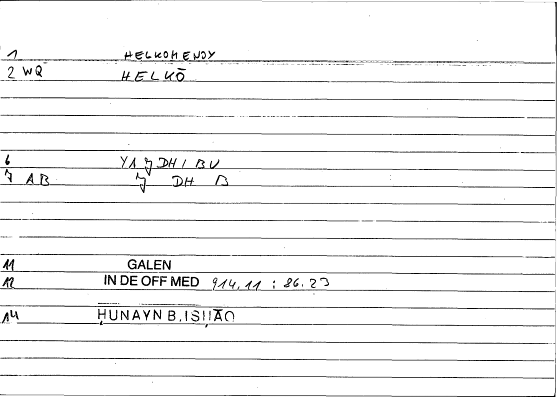 1 HELKOMENOY
2 WQ HELKŌ
6 YA ʒ DH I BU
7 AB ʒ DH B
11 GALEN
12 IN DE OFF MED 914.11 : 86.23
14 ḤUNAYN B.ISḤĀQ